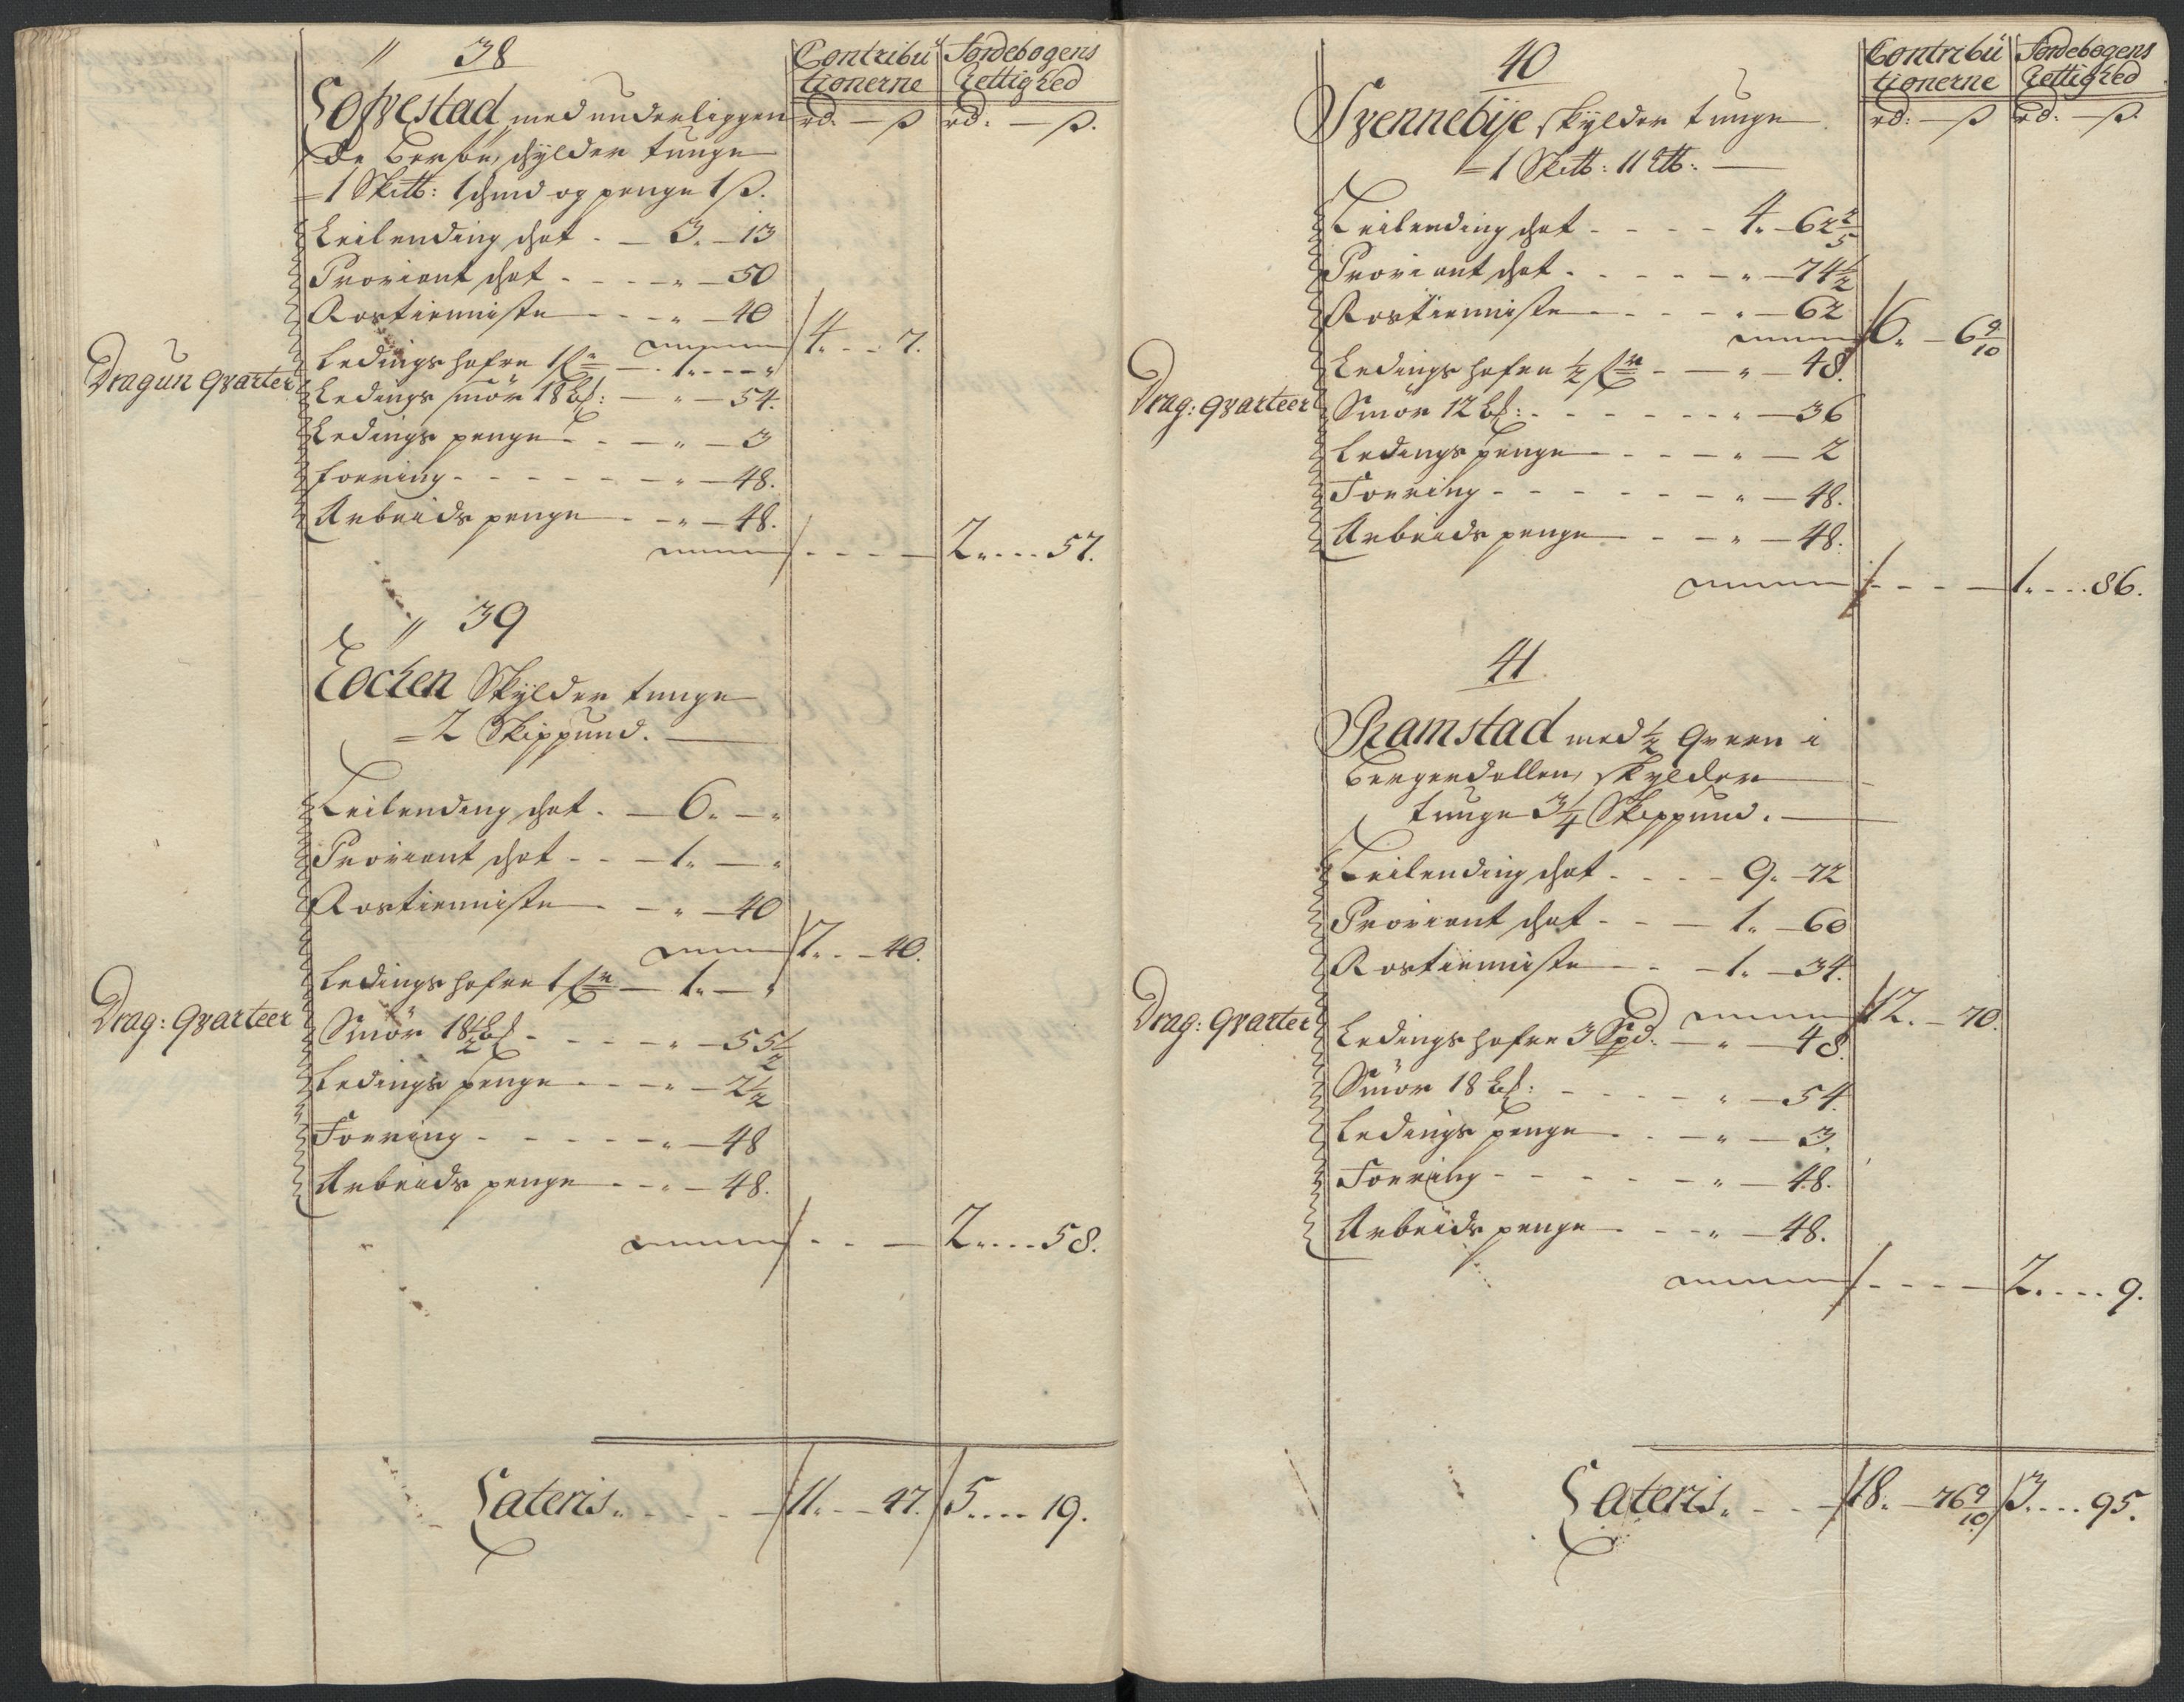 〃 38
Contribu
tionerne
Jordebogens
Rettighed
Lofvestad med underliggen
rd. — ß rd. — ß.
de Bersøe, skylder tunge
= 1 Skitt: 1 huud og penge 1 ß.
Leilending skat . — 3. — 13
Proviant skat . - - - „ — 50
Rostienniste - - - „ — 40
4. - - 7.
Dragun Qvarter
Ledings hafre 1 — . 1. - - - „
Ledings smör 18 — „ — 54.
Ledings penge . - — „ — 3
foering - - - - - - „ — 48.
Arbeids penge . - „ — 48.
- - - — 2. . . . 57.
〃 39
Locken Skylder tunge
= 2 Skippund. —
Leilending skat . — 6. — „
Proviant skat - - — 1. — „
Rostienniste — - „ — 40
7. - - 40.
Ledings hafre 1 — 1. — „
Drag: Qvarteer
Smör 18½ - - - - „ — 55½
Ledings penge - - — „ — 2½
Foering - - - - - „ — 48
Arbeids penge - - „ — 48.
- - — 2. . . . 58.
Lateris. - - - - 11. - - 47. 5. . . . 19.
40
Contribu
tionerne
Jordebogens
Rettighed
Svennebÿe skylder tunge
rd: — ß rd. — ß.
= 1 Skitt: 11 Ltt: —
Leilending skat - - - - 4. — 62 2/5
Proviant skat - - - - - „ — 74½
Rostienniste - - - - „ — 62
6. — 6 9/10
Ledings hafre ½ - — „ — 48.
Drag: Qvarteer
Smör 12 - - - - - - „ — 36
Ledings penge - - - „ — 2
Foering - - - - - - „ — 48.
Arbeids penge - - - „ — 48.
- - - — 1. - - . 86.
41.
Ramstad med ½ Qvern i
Bergerdallen, skylder
tunge 3¼ Skippund. —
Leilending skat - - - - 9. — 72
Proviant skat - - — 1. — 60
Rostienniste - - — 1. — 34.
12. — 70.
Drag: Qvarter
Ledings hafre 3 Spd. — „ — 48.
Smör 18 - - - - „ — 54.
Ledings penge - - — „ — 3.
Foering - - - - - - „ — 48.
Arbeids penge - - - „ — 48.
- - - — 2. . . . 9.
Lateris. - - - 18. — 76 9/10 3. . . . 95.